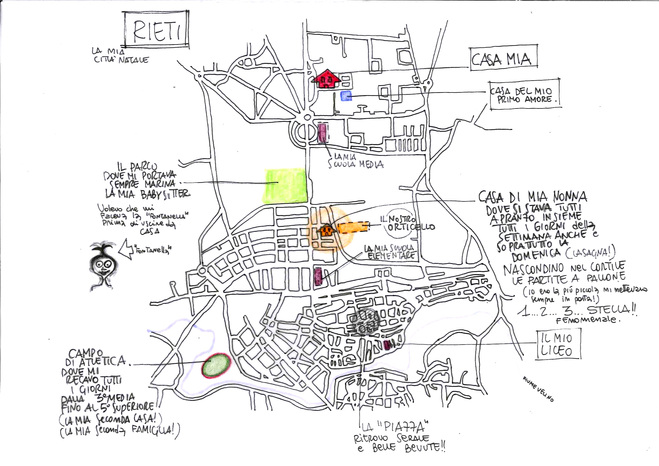 RIETI
LA MIA
CITTÀ NATALE
CASA MIA
CASA DEL MIO
PRIMO AMORE.
LA MIA
SCUOLA MEDIA
IL PARCO
DOVE MI PORTAVA
SEMPRE MARINA
LA MIA BABY SITTER
Volevo che mi
facesse la "fontanella"
prima di uscire da
CASA
"fontanella"
CASA DI MIA NONNA
DOVE SI STAVA TUTTI
A PRANZO INSIEME
TUTTI I GIORNI della
SETTIMANA ANCHE E
SOPRATTUTTO LA
DOMENICA (LASAGNA!)
NASCONDINO NEL CORTILE
LE PARTITE A PALLONE
(io ero la più piccola mi mettevano
sempre in porta!)
1... 2... 3... STELLA!!
Fenomenale.
IL NOSTRO
ORTICELLO
LA MIA SCUOLA
ELEMENTARE
IL MIO
LICEO
CAMPO
DI ATLETICA
DOVE MI
RECAVO TUTTI
I GIORNI
DALLA 3° MEDIA
FINO AL 5° SUPERIORE!
(LA MIA SECONDA CASA!)
(LA MIA SECONDA FAMIGLIA!)
FIUME VELINO
LA "PIAZZA"
RITROVO SERALE
E BELLE BEVUTE!!